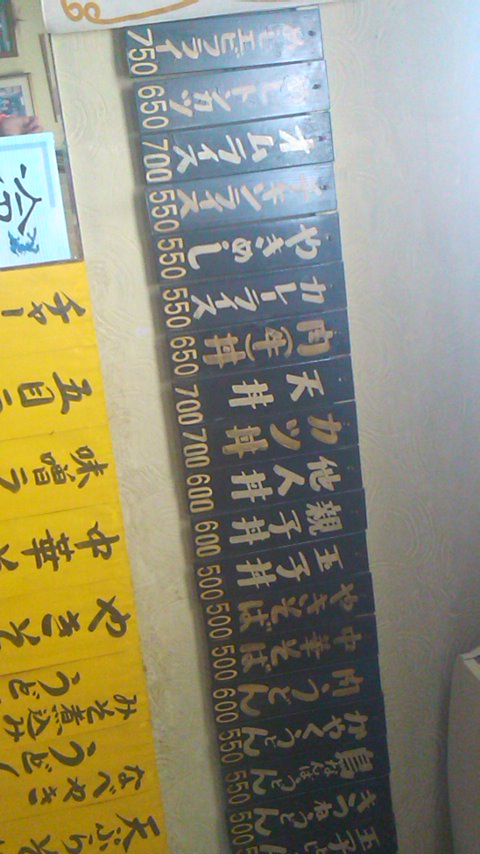 玉子と
きつねうどん 500
鳥なんばうどん 550
かやくうどん 550
肉うどん 600
中華そば 500
やきそば 500
玉子丼 500
親子丼 600
他人丼 600
カツ丼 700
天丼 700
肉(牛)丼 650
カレーライス 550
やきめし 550
チキンライス 550
オムライス 700
トカツ 650
エビフライ 750
天ぷら
なべやき
うどん
みそ煮込み
うどん
やきそ
中華
味噌ラ
五目ラ
チャー
冷